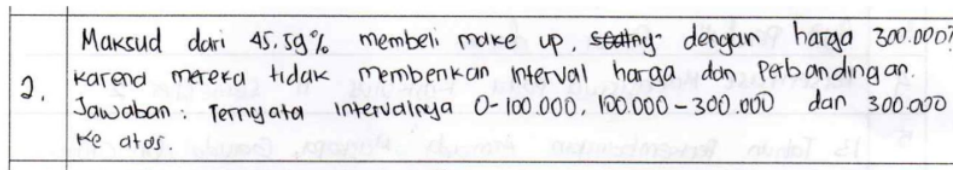 Maksud dari 45.59% membeli make up, dengan harga 300.000?
2. Karena mereka tidak memberikan interval harga dan perbandingan.
Jawaban : Ternyata intervalnya 0-100.000, 100.000-300.000 dan 300.000
ke atas.